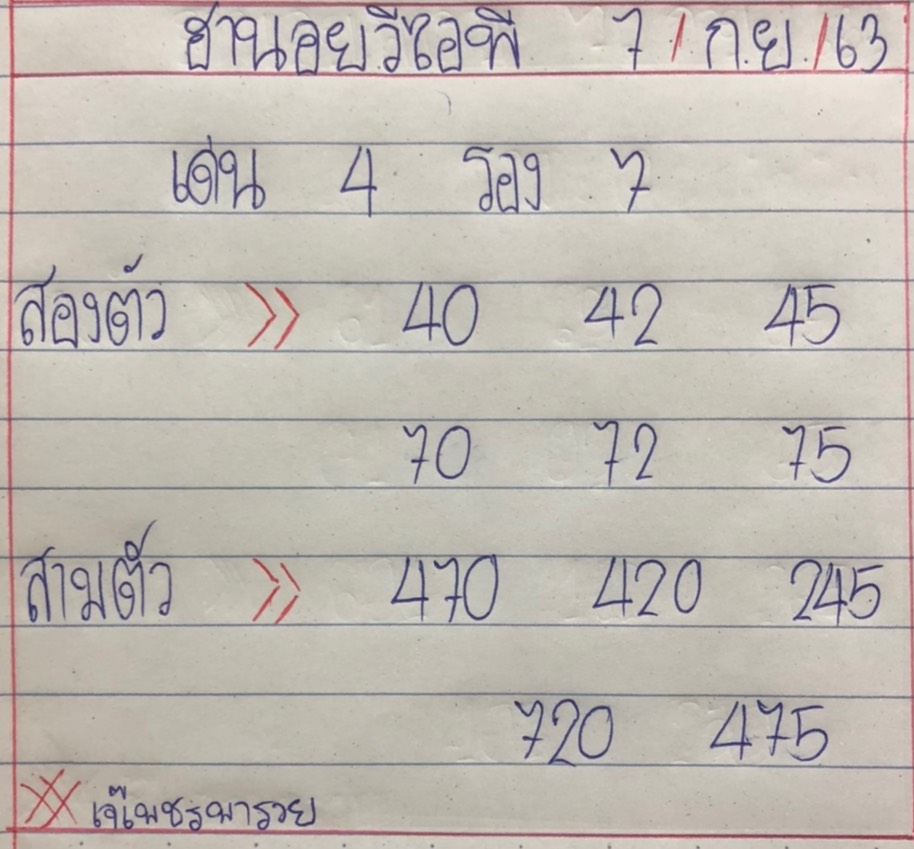 ฮานอยวีไอพี 7/ก.ย./63
เด่น 4 รอง 7
สองตัว >> 40 42 45
70 72 75
สามตัว >> 470 420 245
720 475
เจ๊เพชรพารวย